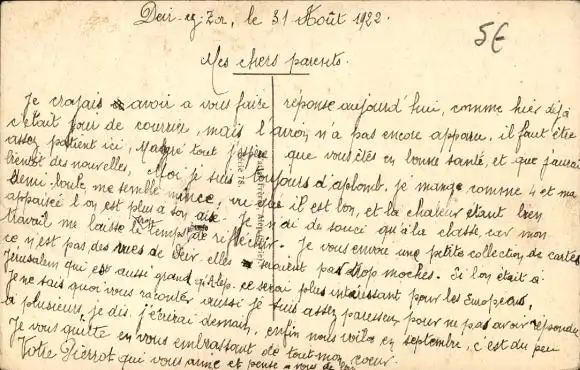 Deir-ez-Zor, le 31 Août 1922.
5€
Mes chers parents.
Je croyais avoir a vous faire réponse aujourd'hui, comme hier déjà
c'était jour de courrier, mais l'avion n'a pas encore apparu, il faut être
assez patient ici, Malgré tout j'espère que vous êtes en bonne santé, et que j'aurai
bientôt des nouvelles, Moi je suis toujours d'aplomb. je mange comme 4 et ma
demi-boule me semble mince, vu que il est bon, et la chaleur étant bien
apaisée l'on est plus à son aise. Je n'ai de souci qu'à la classe, car mon
travail me laisse le temps de réfléchir. Je vous envoie une petite collection de cartes
ce n'est pas des vues de Deir, elles seraient pas trop moches. Si l'on était à
Jerusalem qui est aussi grand qu'Alep, ce serai plus intéressant pour les Européens,
Je ne sais quoi vous raconter, aussi je suis assez paresseux pour ne pas avoir répondu
à plusieurs, je dis, j'écrirai demain, enfin nous voilà en septembre, c'est du peu
Je vous quitte en vous embrassant de tout mon coeur.
Votre Pierrot qui vous aime et pense a vous de